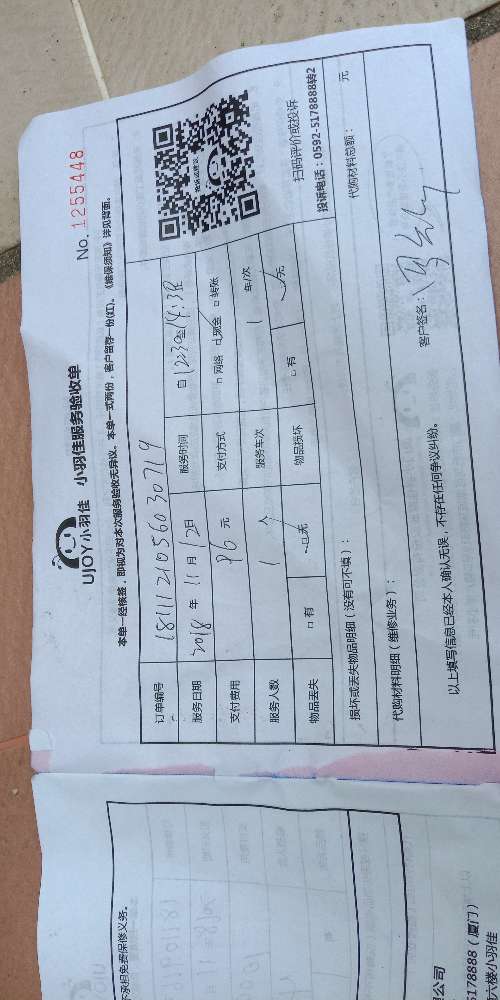 No. 1255448
UJOY小羽佳 小羽佳服务验收单
本单一经核签，即视为对本次服务验收无异议。本单一式两份，客户留存一份(红)。《维保须知》详见背面。
订单编号 1811121056030719
服务日期 2018 年 11 月 12 日 服务时间
支付费用 96 元 支付方式 □ 网络 □ 现金 □ 转账
服务人数 1 个 服务年次 1 年/次
物品丢失 □ 有 □ 无 物品损坏 □ 有 □ 无
投诉或建议
扫码评价或投诉
投诉电话：0592-5178888转2
损坏或丢失物品明细（没有可不填）：
代购材料明细（维修业务）： 代购材料总额： 元
以上填写信息已经本人确认无误，不存在任何争议纠纷。 客户签名：
不承担免费保修义务。
公司
5178888（厦门）
六楼小羽佳